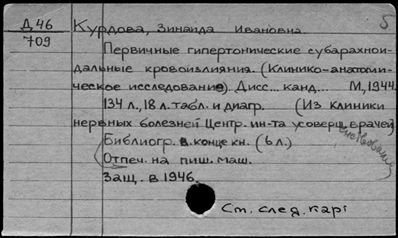 Д 46
709
Курдова, Зинаида Ивановна
5
Первичные гипертонические субарахнои-
дальные кровоизлияния. (Клинико-анатоми-
ческое исследование). Дисс... канд... М, 1944.
134 л., 18 л. табл. и диагр. (Из клиники
нервных болезней Центр. ин-та усоверш. врачей)
Библиогр. в конце кн. (6 л.)
Отпеч. на пиш. маш.
Защ. в 1946.
См. след. карт